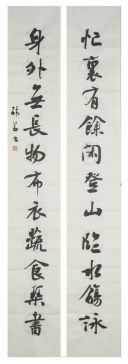 忙裏有餘閒登山臨水觴詠
身外無長物布衣蔬食琴書